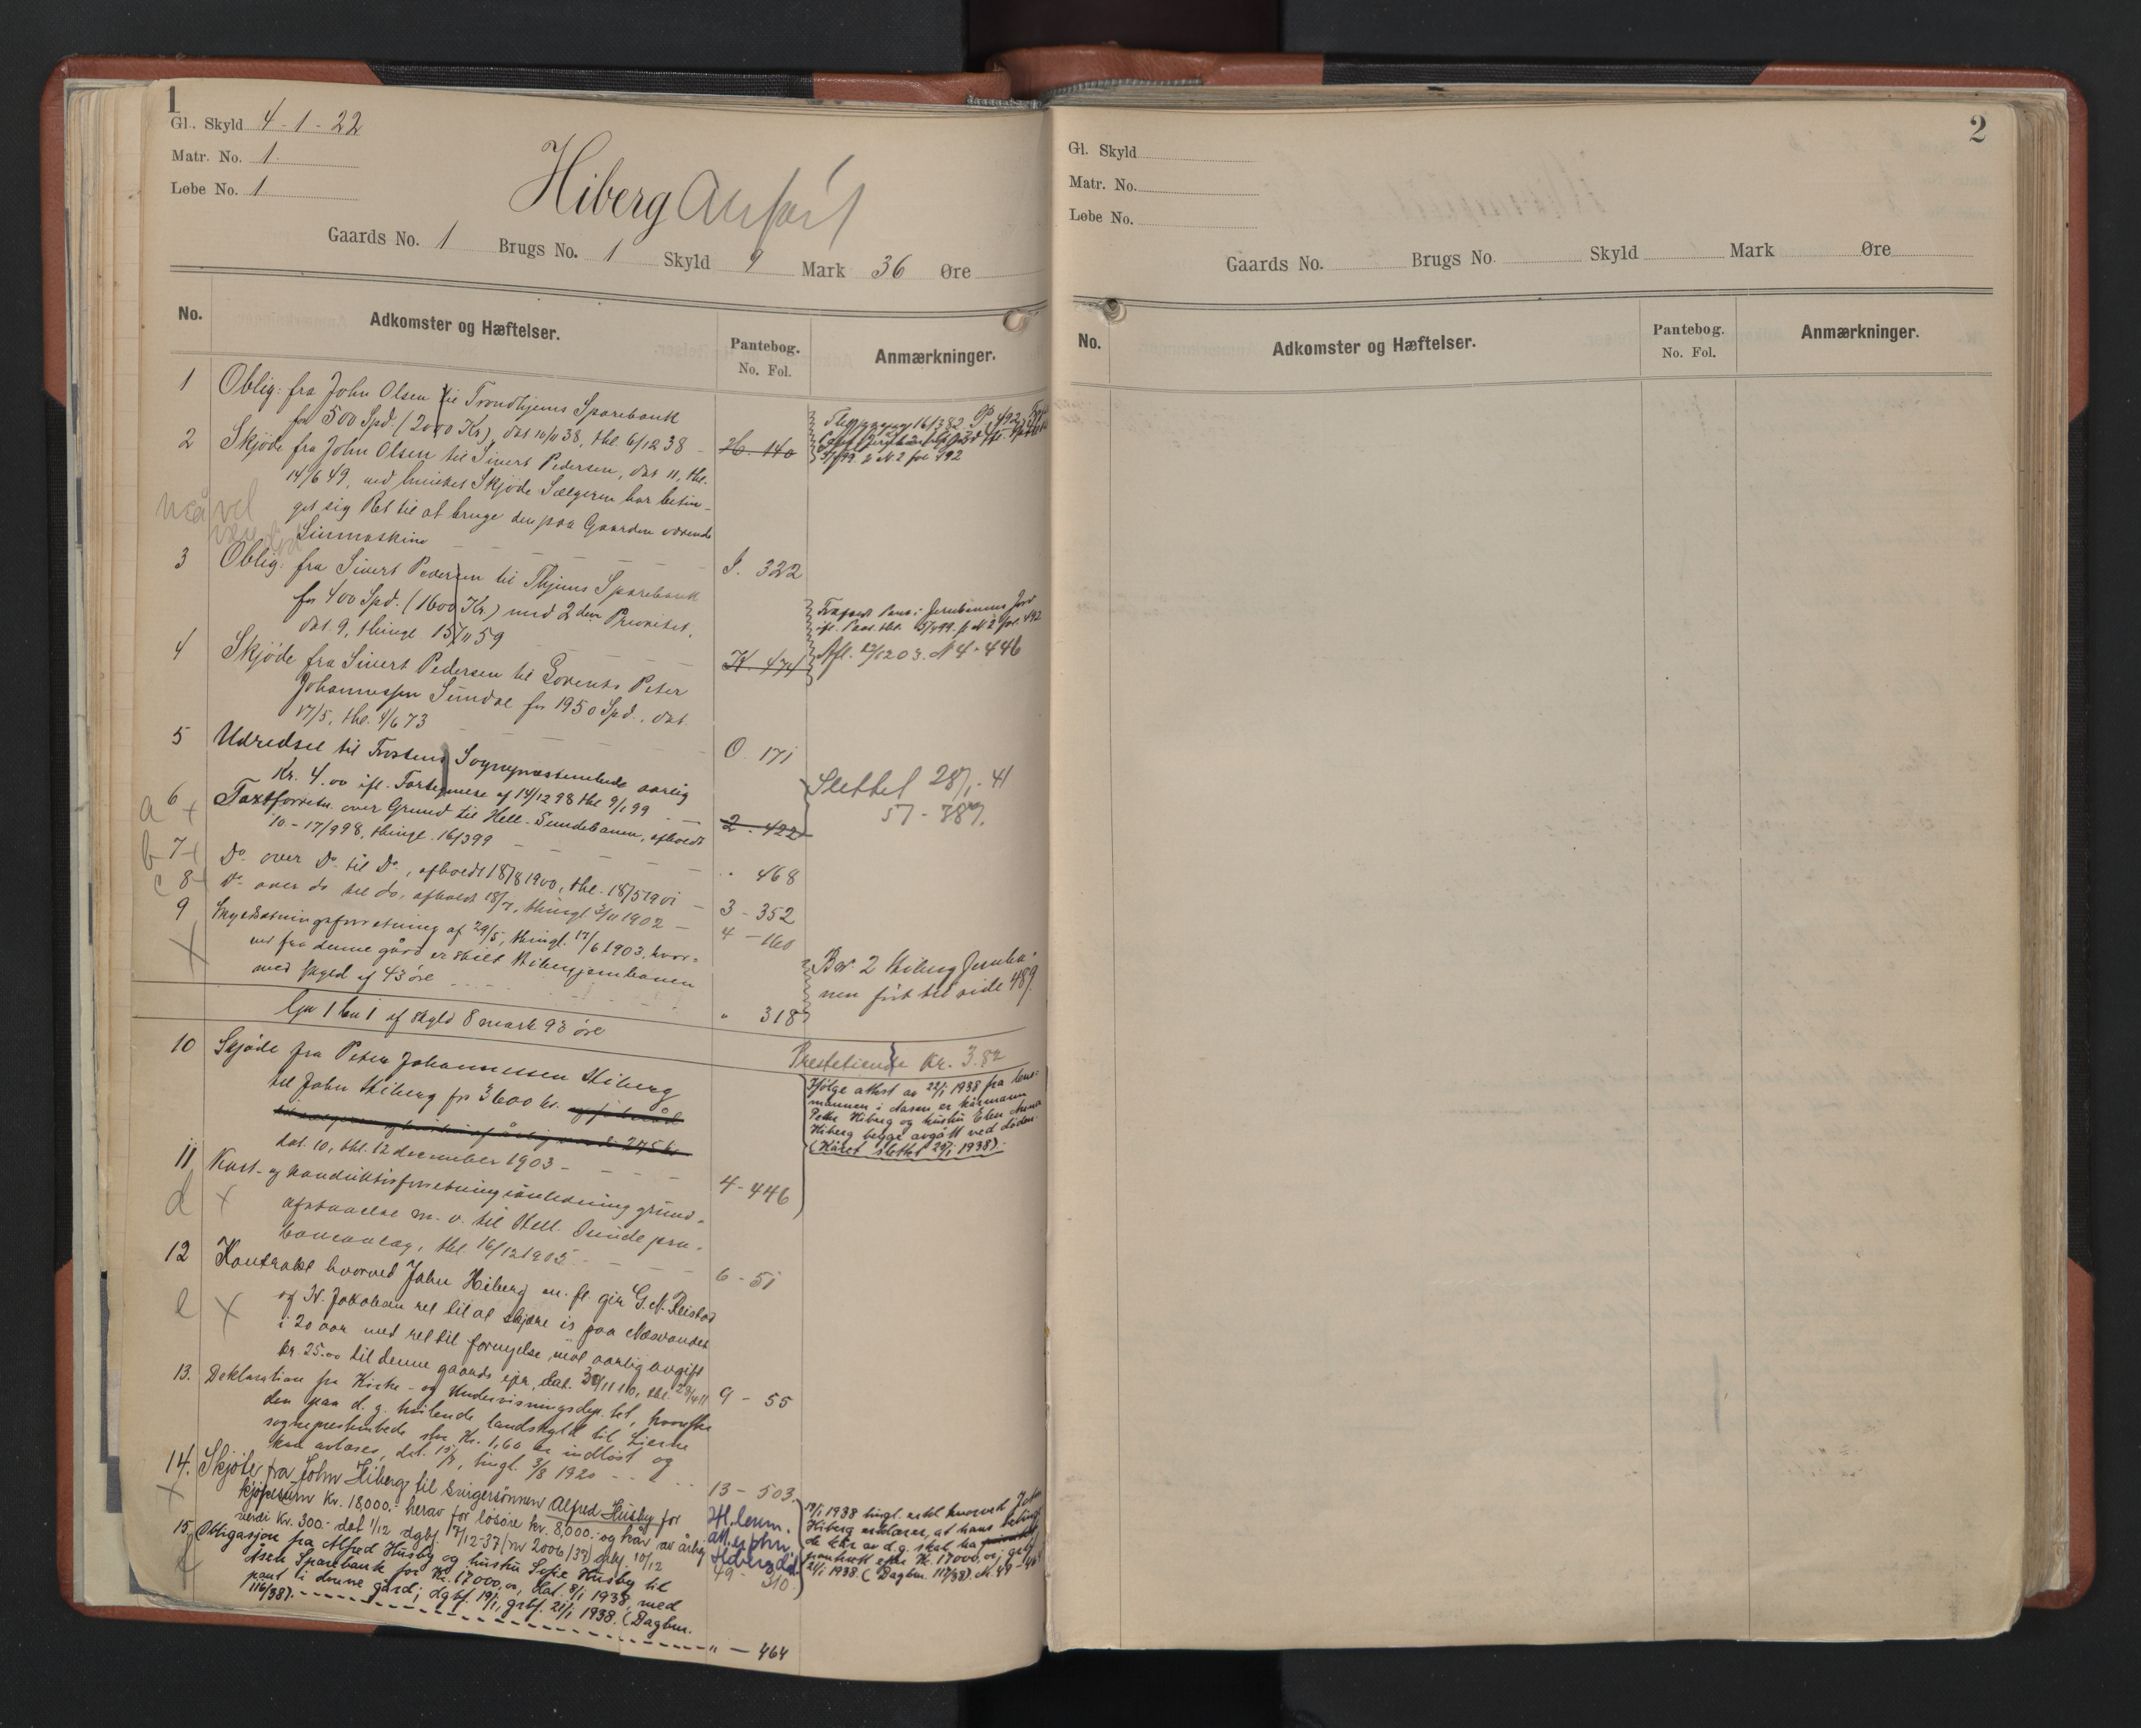 1
Gl. Skyld 4-1-22
Matr. No. 1.
Løbe No. 1
Hiberg
Gaards No. 1 Brugs No. 1 Skyld 9 Mark 36 Øre
No. Adkomster og Hæftelser. Pantebog. No. Fol. Anmærkninger.
1 Oblig: fra John Olsen til Trondhjems Sparebank
for 500 Spd. (2000 Kr), dat 10/11 38, thl. 6/12 38 - H. 140
2 Skjøde fra John Olsen til Sivert Pedersen, dat 11, thl.
14/6 49, ved hvilket Skjøde Sælgeren har betin-
get sig Ret til at bruge den paa Gaarden værende
- - - - I. 322
3 Oblig: fra Sivert Pedersen til Thjems Sparebank
for 400 Spd. (1600 Kr.) med 2den Prioritet,
dat. 9, thingl. 15/11 59 - - - K. 474
Afl. 12/12 03. N 4-446
4 Skjøde fra Sivert Pedersen til Lorents Peter
Johannessen Sundal for 1950 Spd., dat.
17/5, thl. 4/6 73 - - - O. 171
5 Udredsel til Frostens Sognepræstembede aarlig
Kr. 4.00 ifl. Fortegnelse af 14/12 98 thl 9/1 99 - 2. 422
Slettet 28/1-41
57-387.
a 6 + Taxtforretn. over Grund til Hell-Sundebanen, afholdt
10-17/9 98, thingl. 16/3 99 - - - " 468
b 7 + Do. over Do. til Do., afholdt 18/8 1900, thl. 18/5 1901 - 3-352
c 8 + Do over do til do, afholdt 18/7, thingl 3/11 1902 - 4-160
9 Skyldsætningsforretning af 29/5, thingl. 17/6 1903, hvor-
ved fra denne gård er skilt Hibergjernbanen
med skyld af 43 øre " 318
X
Bn. 2 Hiberg Jernba-
nen ført til side 489.
Gn 1 bn 1 af skyld 8 mark 93 øre
Prestetiende kr. 3.82
10 Skjøde fra Peter Johannessen Hiberg
til John Hiberg for 3600 kr.
dat. 10, thl. 12 december 1903 - - - 4-446
Ifølge attest av 22/1 1938 fra lens-
mannen i Aasen er kårmann
Petter Hiberg og hustru Elen Anna
Hiberg begge avgått ved døden.
(Kåret slettet 24/1 1938).
11 Kart- og konduktørforretning i anledning grund-
d + afstaaelse m. v. til Hell-Sunde pru.
baneanlæg, thl. 16/12 1905 - - - 6-51
12 Kontrakt hvorved John Hiberg m. fl. gir G. N. Reistad
e X og N. Jakobsen ret til at skjære is paa Næsvandet
i 20 aar med ret til fornyelse, mot aarlig avgift
kr. 25.00 til denne gaards eier, dat. 30/11 10, thl. 28/4 11 9-55
13. Deklaration fra Kirke- og Undervisningsdep. tet, hvorefter
den paa d. g. hvilende landskyld til Lierne
sogneprestembede stor Kr. 1,60 er indløst og
kan avlases, dat. 15/7, tingl. 3/8 1920 - - 13-503.
14. Skjøte fra John Hiberg til svigersønnen Alfred Husby for
X kjøpesum Kr. 18000.- herav for løsøre kr. 8,000.- og kår av årlig
verdi Kr. 300.- dat 1/12 dgbj. 7/12-37 (nr 2006/37) grbj. 10/12 49-310.
17/1 1938 tingl. erkl. hvorved John
Hiberg erklærer, at hans betingede
kår av d. g. skal ha
pantrett efter Kr. 17000,00; grbf.
21/1 1938. (Dagbnr. 117/38). N. 49-464
15. Obligasjon fra Alfred Husby og hustru Sofie Husby til
Åsen Sparebank for Kr. 17000,00, dat. 8/1 1938, med
pant i denne gård; dgbf. 19/1, grbf. 21/1 1938. (Dagbnr.
116/38). - - - " - 464
2
Gl. Skyld
Matr. No.
Løbe No.
Gaards No. Brugs No. Skyld Mark Øre
No. Adkomster og Hæftelser. Pantebog. No. Fol. Anmærkninger.